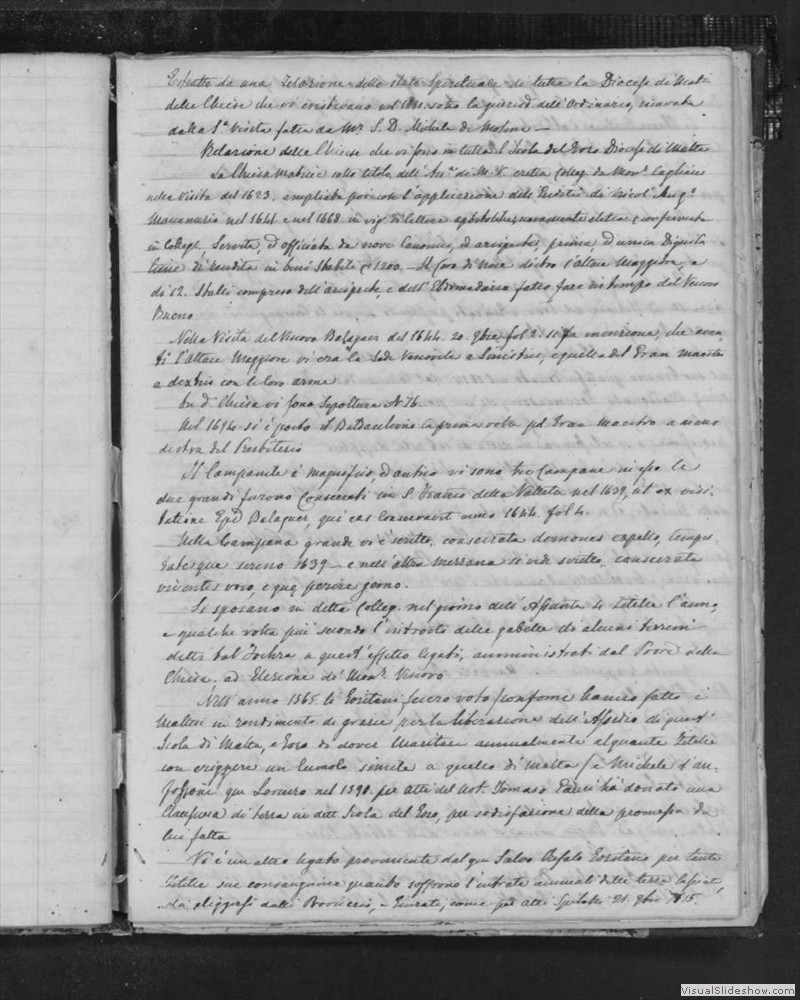 Estratto da una Relazione dello stato Spirituale di tutta la Diocesi di Malta
delle Chiese che vi esistevano nel sotto la giurisd. dell'Ordinario, ricavata
dalla S.ta Visita fatta da Mr. S. D. Michele de Molina —
Relazione delle Chiese che vi sono in tutta l'Isola del Gozo Diocesi di Malta
La Chiesa Matrice sotto titolo dell' Ass.e di M. V. eretta Colleg. da Mons.r Cagliares
nella Visita del 1623. ampliata poi con l'applicazione dell'Eredità di Nicol'Ang.o
Mananusio nel 1644 e nel 1668. in vig. di lettere apostoliche nuovamente eletta e confermata
in Colleg. Servita, ed officiata da nove Canonici, ed arciprete, prima, ed unica Dignità
tiene di rendita in beni Stabili 1200. — Il Coro di Noce dietro l'altare Maggiore, e
di 12. Stalli compreso dell'arciprete, e dell'Ebdomadario fatto fare in tempo del Vescovo
Bueno
Nella Visita del Vescovo Balaguer del 1644. 20. 9bre fol 2. si fa menzione, che avan-
ti l'altare Maggiore vi era la Sede Vescovile a Sinistris, e quella del Gran Maestro
a dextris con le loro arme
In d.a Chiesa vi sono Sepolture N.o 76.
Nel 1694 si è posto il Baldacchino la prima volta pel Gran Maestro a mano
destra del Presbiterio
Il Campanile è magnifico, ed antico vi sono tre Campane in esso le
due grandi furono consecrate in S. della Valletta nel 1639, ut ex visi-
tatione Epi Balaguer, qui eas consecravit anno 1644. fol 4.
Nella Campana grande vi è scritto, consecrata demones expello, tempes-
tatesque sereno 1639 — e nell'altra mezzana si vede scritto, consecrata
viventes voco, e
Si sposano in detta Colleg. nel giorno dell'Assunta 4 zitelle l'anno,
e qualche volta più secondo l'introito delle gabelle di alcuni terreni
detti a quest'effetto legati, amministrati dal Proc.re della
Chiesa ad Elezione di Mons.r Vescovo
Nell'anno 1565 li Gozitani fecero voto conforme hanno fatto i
Maltesi in rendimento di grazie per la liberazione dell'Assedio di quest'
Isola di Malta, e Gozo di dover Maritare annualmente alquante Zitelle
con eriggere un Cumolo simile a quello di Malta, e Michele d'An-
qm Lorenzo nel 1590. per atti del Not. Tomaso ha donato una
Clausura di terra in dett'Isola del Gozo, per sodisfazione della promessa da
lui fatta
Vi è un altro legato proviniente dal qm Salvo Gozitano per tante
Zitelle sue consanguinee quanto soffrono l'entrate annuali delle terre lasciate
da eliggersi dalli Giurati, come per atti 21. 9bre
VisualSlideshow.com